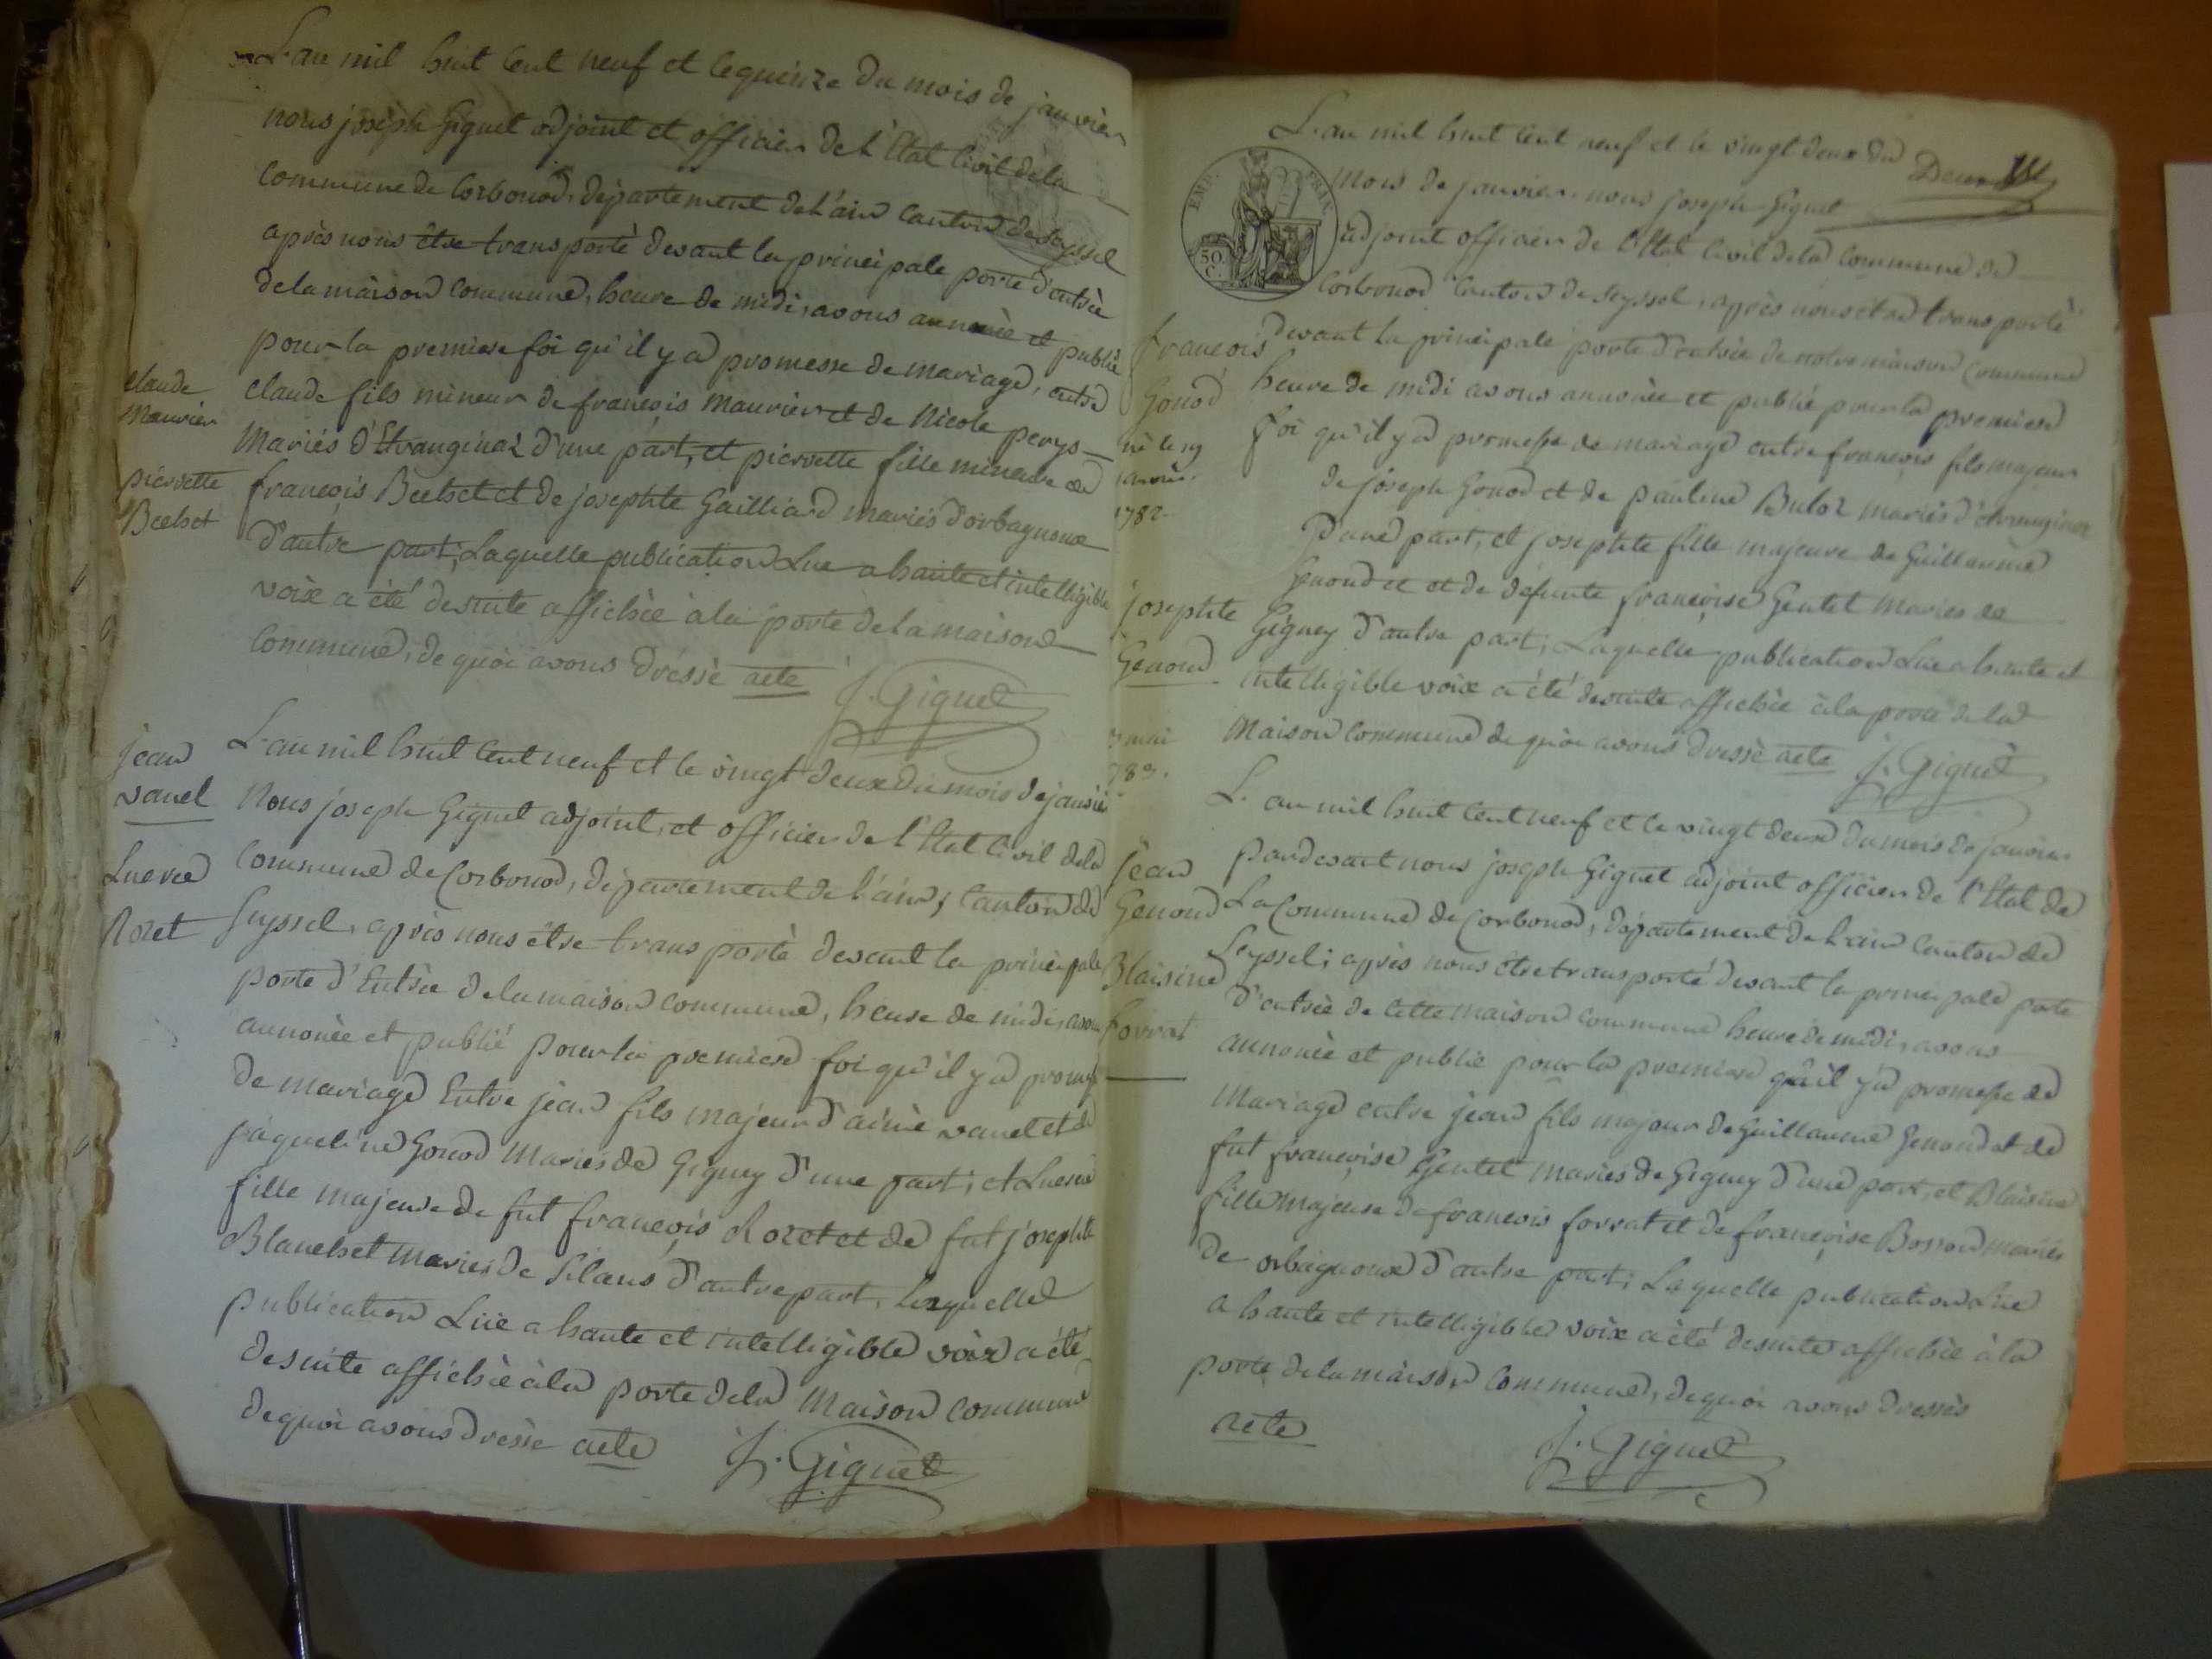 L'an mil huit cent neuf et le quinze du mois de janvier
nous joseph Giguet adjoint et officier de l'Etat Civil de la
commune de Corbonod, département de l'ain canton de seyssel
après nous être transporté devant la principale porte d'entrée
de la maison commune, heure de midi, avons annoncè et publiè
pour la premiere foi qu'il y a promesse de mariage, entre
claude fils mineur de françois maurier et de Nicole perys
Mariés d'Etranginaz d'une part, et pierrette fille mineure de
françois Beelset et de josephte Gailliard mariés d'orbagnoux
d'autre part; Laquelle publication Lue a haute et intelligible
voix a été desuite affichée à la porte de la maison
commune, de quoi avons dressè acte J. Giguet
claude
Maurier
pierrette
Beelset
L'an mil huit cent neuf et le vingt deux du mois de janvier
Nous joseph Giguet adjoint, et officier de l'Etat Civil de la
commune de Corbonod, département de l'ain, canton de
seyssel, après nous être transporté devant la principale
porte d'Entrée de la maison commune, heure de midi, avons
annoncée et publié pour la premiere foi qu'il y a promesse
de mariage Entre jean fils majeur d'aimé vanel et de
jaqueline Gonod Mariés de Gigney d'une part; et Lucrece
fille majeure de fut françois Rozet et de fut josephte
Blanchet mariés de Silans d'autre part, Laquelle
publication Lüe a haute et intelligible voix a été
desuite affichée à la porte de la Maison commune
de quoi avons dressé acte J. Giguet
jean
vanel
Lucrece
Rozet
Deux
L'an mil huit cent neuf et le vingt deux du
Mois de janvier, nous joseph Giguet
adjoint officier de l'Etat Civil de la commune de
Corbonod canton de seyssel, après nous être transporté
devant la principale porte d'entrée de notre maison commune
heure de midi avons annoncée et publié pour la premiere
foi qu'il y a promesse de mariage entre françois fils majeur
de joseph Gonod et de pauline Buloz mariés d'etranginaz
d'une part, et josephte fille majeure de Guillaume
Genond et de defunte françoise Gentet mariés de
Gigney d'autre part; Laquelle publication Lue a haute et
intelligible voix a été desuite affichée à la porte de la
Maison commune de quoi avons dressè acte J. Giguet
EMP. FRAN.
50 C.
françois
Gonod
né le 19
1782.
josephte
Genond
mai
783.
L'an mil huit cent neuf et le vingt deux du mois de janvier
pardevant nous joseph Giguet adjoint officier de l'Etat de
La commune de Corbonod, département de l'ain canton de
Seyssel; après nous être transporté devant la principale porte
d'entrée de cette maison commune heure de midi, avons
annoncée et publie pour la premiere qu'il y a promesse de
Mariage entre jean fils majeur de Guillaume Genond et de
fut françoise Gentet mariés de Gigney d'une part, et Blaisine
fille majeure de françois forrat et de françoise Bosson mariés
de orbagnoux d'autre part; Laquelle publication Lüe
a haute et intelligible voix a été desuite affichée à la
porte de la maison commune, de quoi avons dressés
acte J. Giguet
jean
Genond
Blaisine
forrat